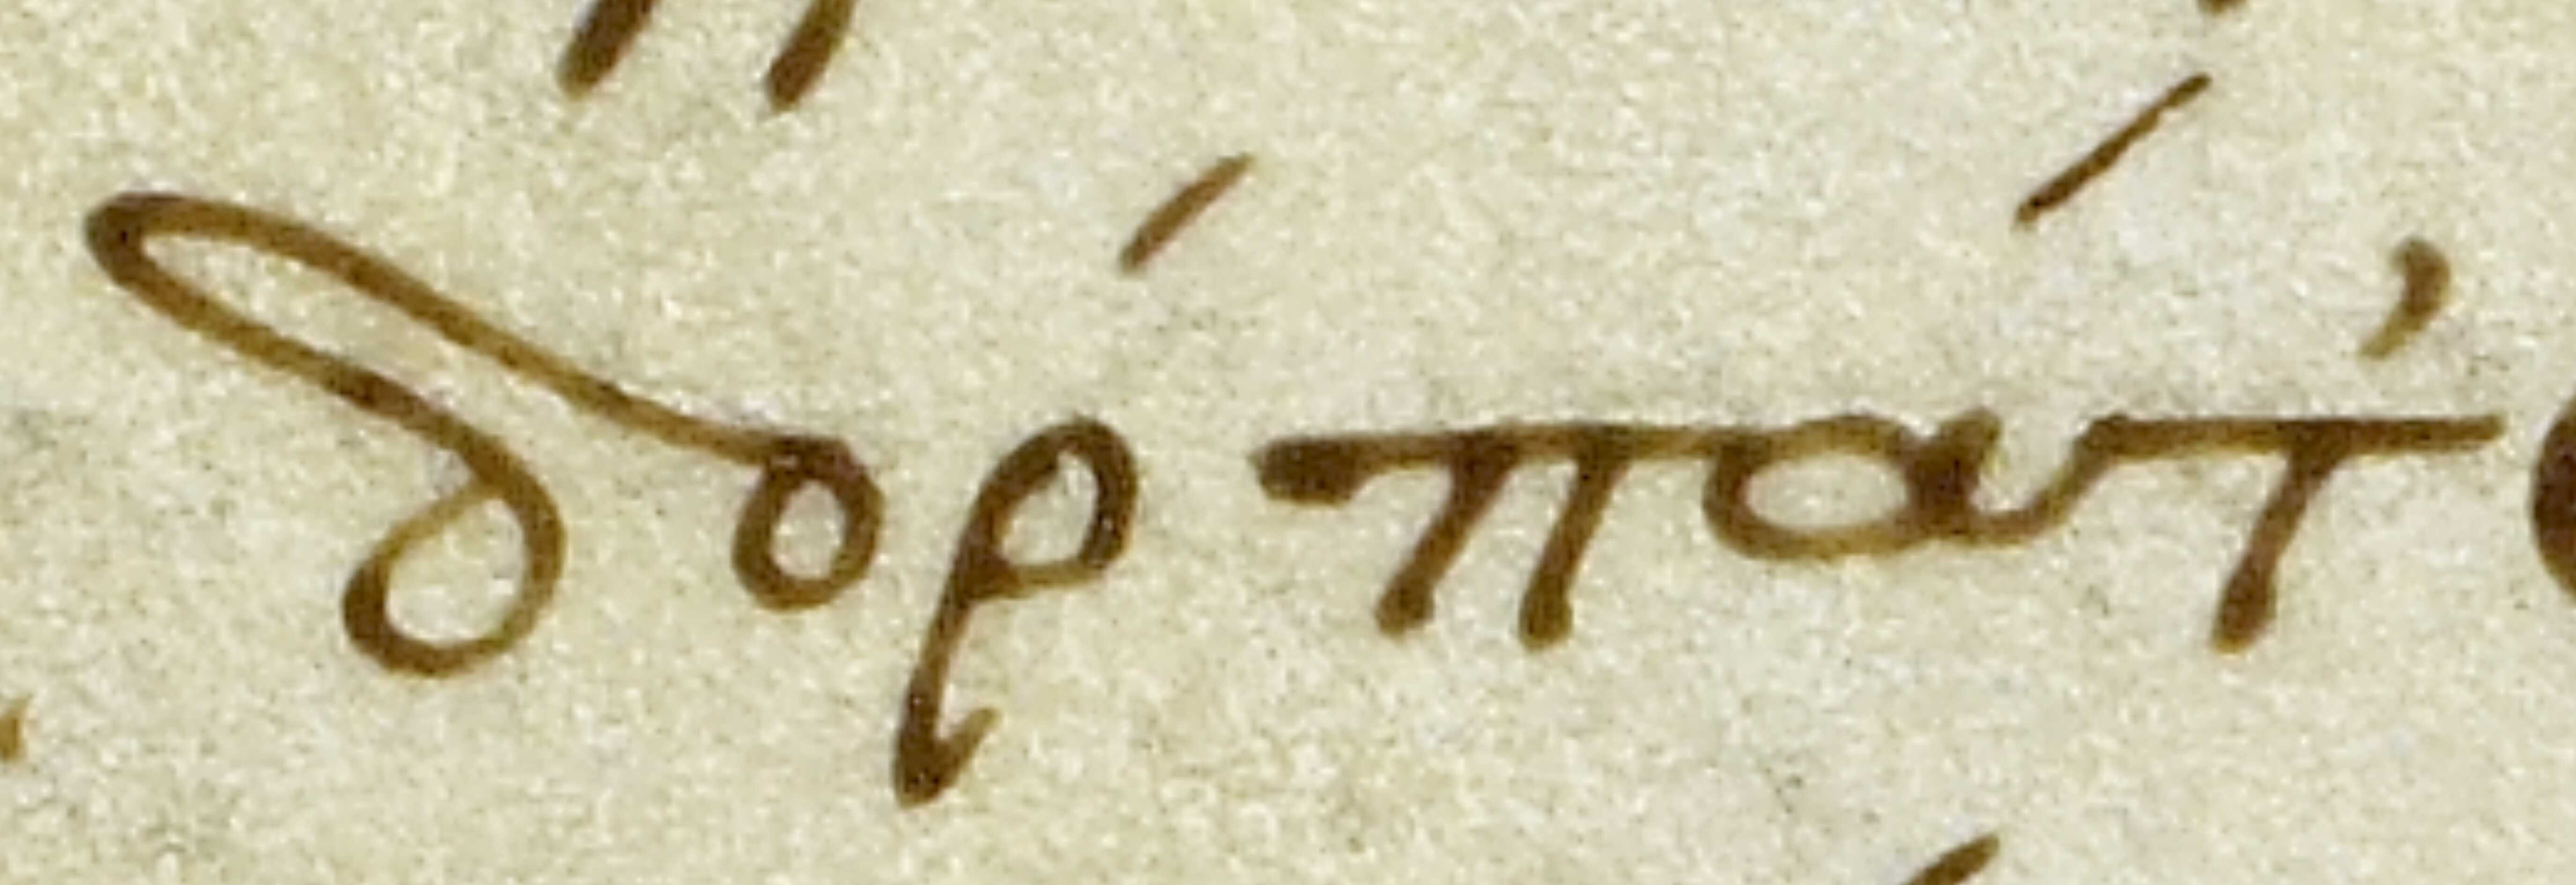 δόρπά τ'